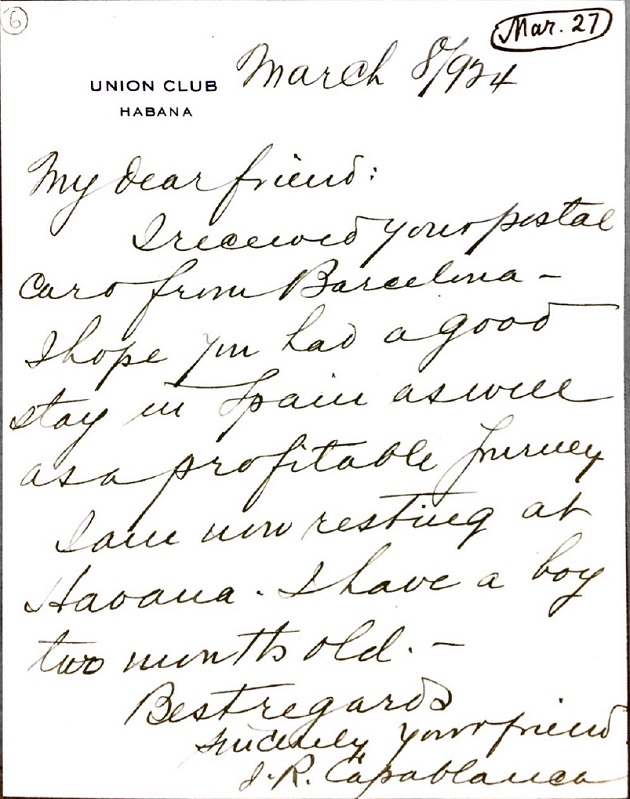 6
Mar. 27
UNION CLUB
HABANA
March 8/924
My dear friend:
I received your postal
card from Barcelona -
I hope you had a good
stay in Spain as well
as a profitable journey
I am now resting at
Havana. I have a boy
two months old. -
Best regards
sincerely your friend
J. R. Capablanca